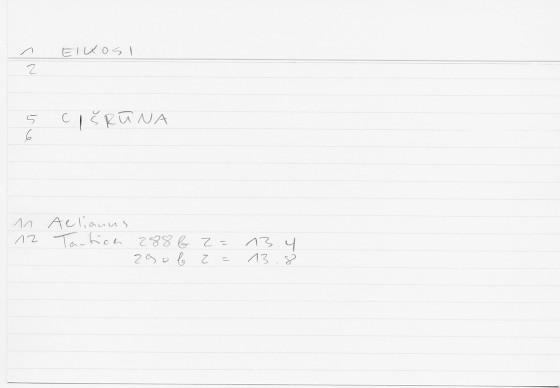 1 EIKOSI
2
5 C|ŠRŪNA
6
11 Aelianus
12 Tactica 288b 2 = 13.4
290b 2 = 13.8